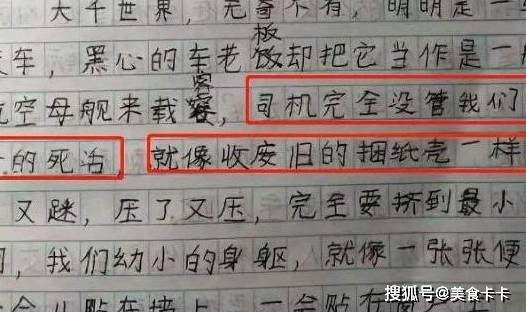 大千世界，无奇不有，明明是一
板
车，黑心的车老却把它当作是一
客
空母舰来载，司机完全没管我们
的死活，就像收废旧的捆纸壳一样
又，压了又压，完全要挤到最小
，我们幼小的身躯，就像一张张便
会儿贴在墙上，一会贴在
搜狐号@美食卡卡